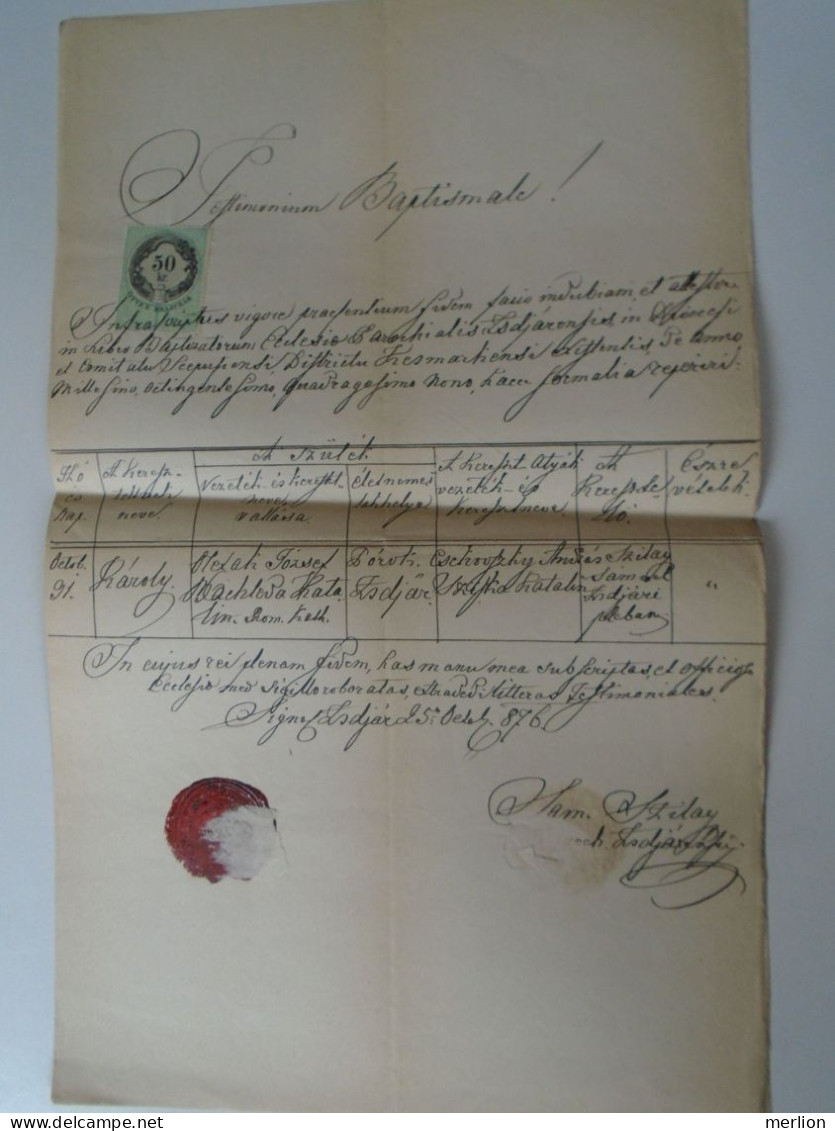 Testimonium Baptismale!
50
kr
Infrascriptus vigore praesentium fidem facio indubiam, et attestor
in Libro Baptizatorum Ecclesio Parochialis Zsdjárensis, in Dioecesi
et Comitatu Scepusiensi, Districtu Kesmarkensi existentis, Te anno
Millesimo, octingentesimo, quadragesimo nono, haec formalia reperiri:
Hó és Nap.
A Keresz-teltnek neve
A szülék
Vezeték és kereszt neve vallása.
életneme s lakhelye
A kereszt Atyák vezeték- és keresztneve
A keresztelő.
Észrevételek
Octob. 31.
Károly.
Olexak József
Wachlova Kata
lin. Rom. Kath.
Zsdjár.
Csekovszky András
Katalin
Szilay Samuel Zsdjári pleban
"
In cujus rei plenam fidem, has manu mea subscriptas, et officiose
Ecclesio med sigillo roboratas, extradedi litteras Testimoniales.
Signe Zsdjár 25a Octob. 876.
Sam. Szilay